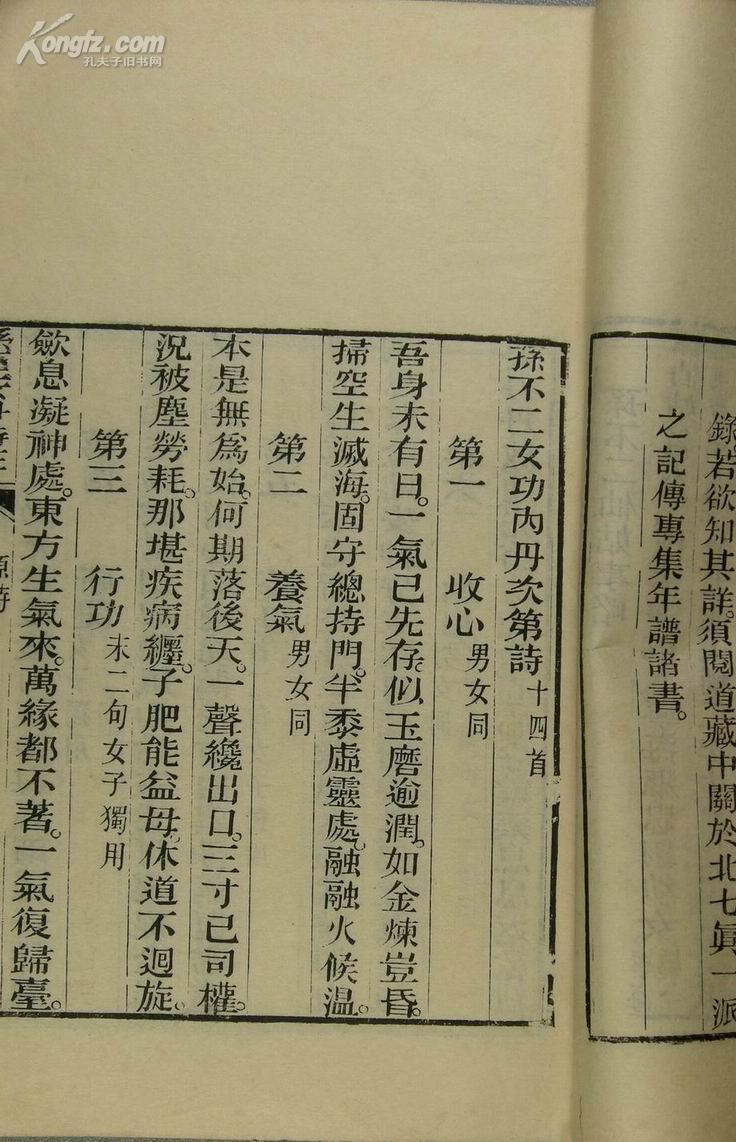 Kongfz.com
孔夫子旧书网
錄若欲知其詳。須閱道藏中關於北七眞一派
之記傳專集年譜諸書。
孫不二女功內丹次第詩 十四首
第一 收心 男女同
吾身未有日。一氣已先存。似玉磨逾潤。如金煉豈昏。
掃空生滅海。固守總持門。半黍虛靈處。融融火候溫。
第二 養氣 男女同
本是無爲始。何期落後天。一聲纔出口。三寸已司權。
況被塵勞耗。那堪疾病纏。子肥能益母。休道不迴旋。
第三 行功 末二句女子獨用
歛息凝神處。東方生氣來。萬緣都不著。一氣復歸臺。